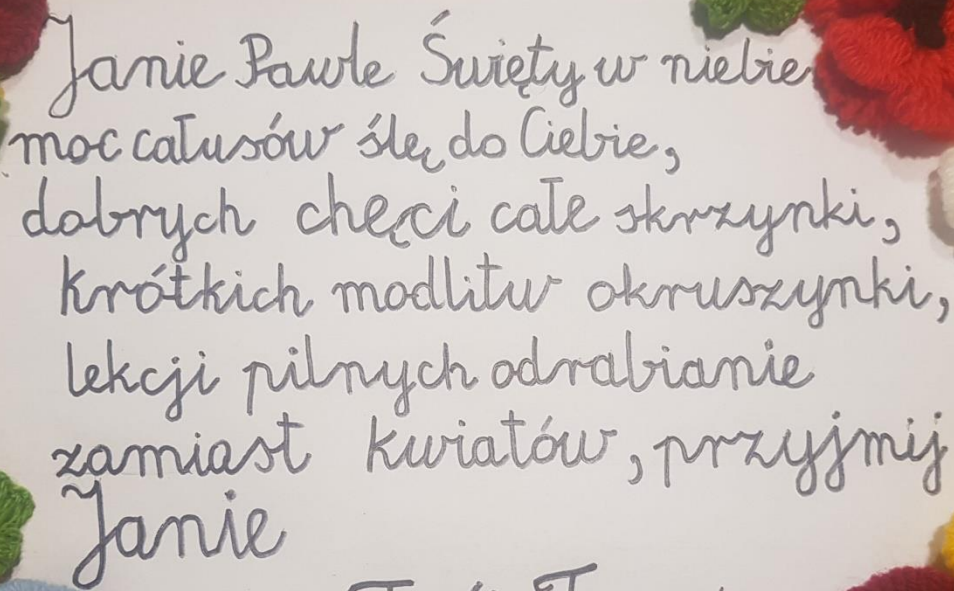 Janie Pawle Święty w niebie
moc całusów ślę do Ciebie,
dobrych chęci całe skrzynki,
krótkich modlitw okruszynki,
lekcji pilnych odrabianie
zamiast kwiatów, przyjmij
Janie